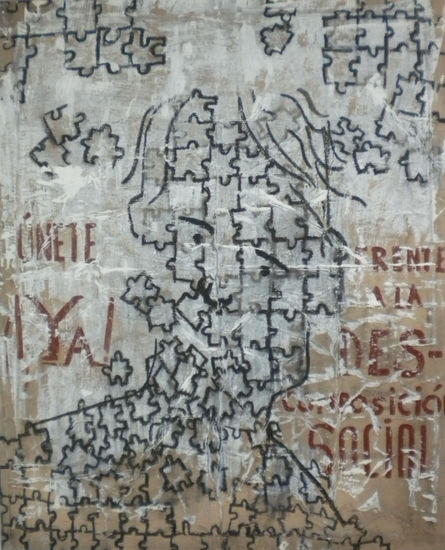 ÚNETE
¡YA!
FRENTE
A LA
DES-
composicion
SOCIAL